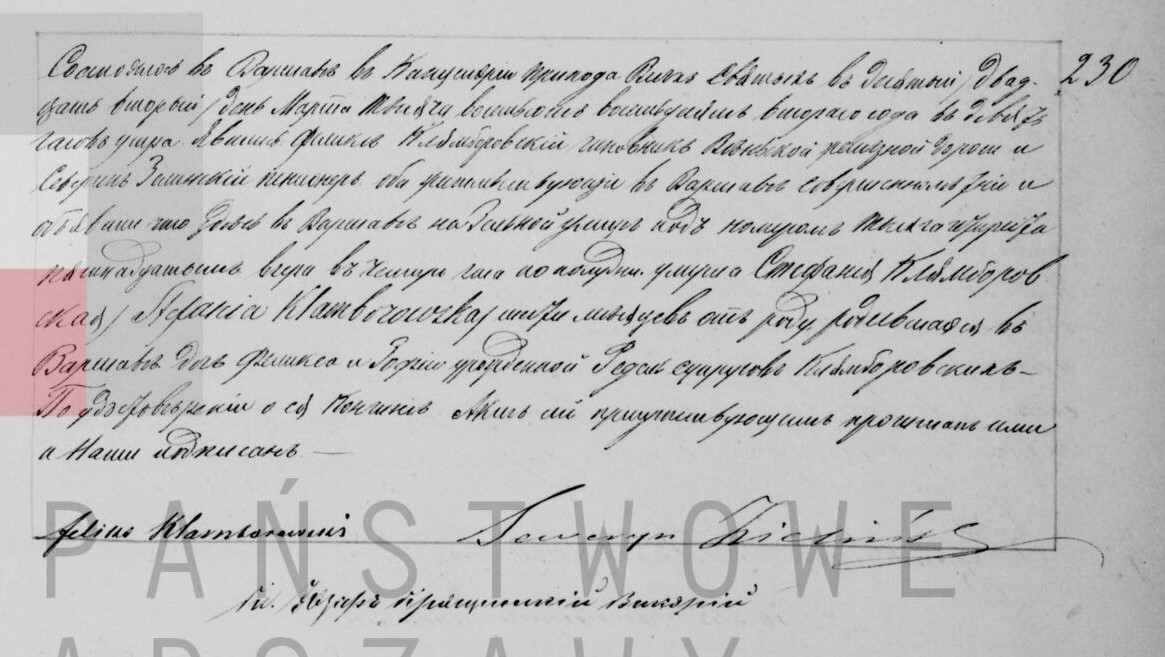 230
Состоялось въ Варшавѣ въ Канцеляріи прихода Всѣхъ Святыхъ въ десятый / двад-
цать второй / день Марта тысяча восемьсотъ восемьдесятъ втораго года въ девять
часовъ утра. Явились Феликсъ Клямборовскій чиновникъ Вѣнской желѣзной дороги и
Северинъ Зелинскій пенсіонеръ оба жительствующіе въ Варшавѣ совершеннолѣтніе и
объявили что здѣсь въ Варшавѣ на улицѣ подъ номеромъ тысяча четыреста
пятнадцатымъ вчера въ четыре часа по полудни умерла Стефанія Клямборов-
ская / Stefania Klamborowska / мѣсяцевъ отъ роду родившаяся въ
Варшавѣ дочь Феликса и Софіи урожденной супруговъ Клямборовскихъ –
По удостовѣреніи о ея кончинѣ Актъ сей присутствующимъ прочитанъ ими
и Нами подписанъ —
Felix Klamborowski Seweryn Zieliński
Викарій
PAŃSTWOWE
ARCHIWY